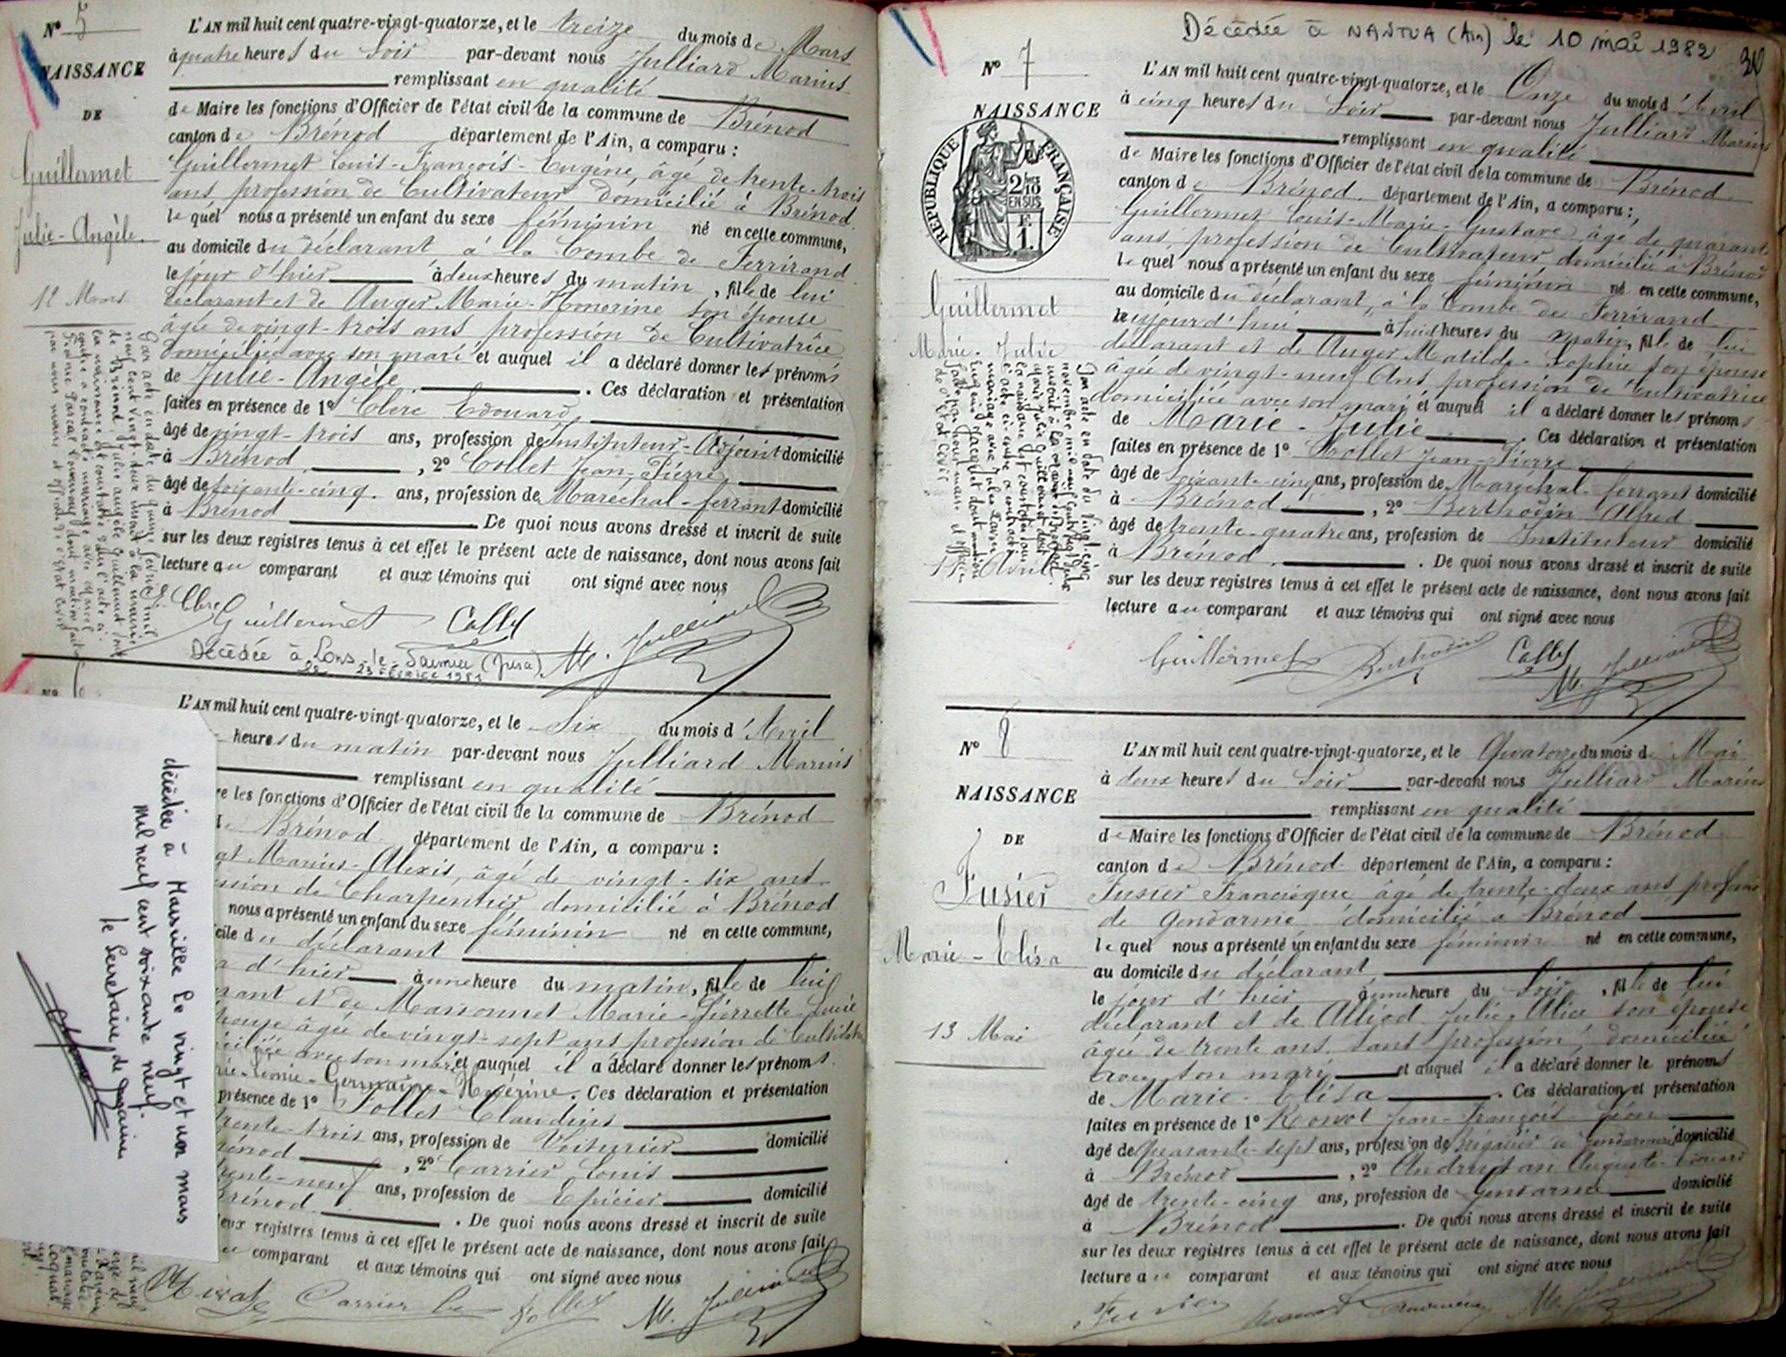 N° 5
NAISSANCE
DE
Guillermet
Julie-Angèle
12 Mars
L'AN mil huit cent quatre-vingt-quatorze, et le treize du mois de Mars
à quatre heures du soir par-devant nous Julliard Marius
remplissant en qualité
de Maire les fonctions d'Officier de l'état civil de la commune de Brénod
canton de Brénod département de l'Ain, a comparu :
Guillermet Louis-François-Eugène, âgé de trente-trois
ans, profession de Cultivateur domicilié à Brénod
le quel nous a présenté un enfant du sexe féminin né en cette commune,
au domicile du déclarant à la Combe de Ferrirand
le jour d'hier à deux heures du matin, fille de lui
déclarant et de Auger Marie-Honorine son épouse
âgée de vingt-trois ans profession de Cultivatrice
domiciliée avec son mari et auquel il a déclaré donner les prénoms
de Julie-Angèle. Ces déclaration et présentation
faites en présence de 1° Clerc Edouard,
âgé de vingt-trois ans, profession de Instituteur-Adjoint domicilié
à Brénod, 2° Collet Jean-Pierre,
âgé de soixante-cinq ans, profession de Maréchal-ferrant domicilié
à Brénod. De quoi nous avons dressé et inscrit de suite
sur les deux registres tenus à cet effet le présent acte de naissance, dont nous avons fait
lecture au comparant et aux témoins qui ont signé avec nous
E. Clerc Guillermet Collet M. Julliard
Décédée à Lons-le-Saunier (Jura)
le 23 février 1981
N° 6
L'AN mil huit cent quatre-vingt-quatorze, et le Six du mois d'Avril
heures du matin par-devant nous Julliard Marius
remplissant en qualité
re les fonctions d'Officier de l'état civil de la commune de Brénod
Brénod département de l'Ain, a comparu :
at Marius-Alexis, âgé de vingt-six ans
ssion de Charpentier domicilié à Brénod
nous a présenté un enfant du sexe féminin né en cette commune,
cile du déclarant
d'hier à une heure du matin, fille de lui
rant et de Massonnet Marie-Pierrette-Lucie
pouse âgée de vingt-sept ans profession de Cultivatrice
ciliée avec son mari et auquel il a déclaré donner les prénoms
rie-Léonie-Germaine-. Ces déclaration et présentation
présence de 1° Follet Claudius
trente-trois ans, profession de Voiturier domicilié
rénod, 2° Carrier Louis
ente-neuf ans, profession de Epicier domicilié
Brénod. De quoi nous avons dressé et inscrit de suite
deux registres tenus à cet effet le présent acte de naissance, dont nous avons fait
comparant et aux témoins qui ont signé avec nous
Carrier Ls Follet M. Julliard
décédée à Marseille le vingt et un mars
mil neuf cent soixante neuf.
le Secrétaire de mairie
Décédée à NANTUA (Ain) le 10 mai 1982
N° 7
NAISSANCE
RÉPUBLIQUE FRANÇAISE
2/10 EN SUS
F 1.
Guillermet
Marie-Julie
11 Avril
L'AN mil huit cent quatre-vingt-quatorze, et le Onze du mois d'Avril
à cinq heures du soir par-devant nous Julliard Marius
remplissant en qualité
de Maire les fonctions d'Officier de l'état civil de la commune de Brénod
canton de Brénod département de l'Ain, a comparu :
Guillermet Louis-Marie-Gustave âgé de quarante
ans, profession de Cultivateur domicilié à Brénod
le quel nous a présenté un enfant du sexe féminin né en cette commune,
au domicile du déclarant, à la Combe de Ferrirand
le jour d'hui à huit heures du matin, fille de lui
déclarant et de Auger Matilde-Sophie son épouse
âgée de vingt-neuf Ans profession de Cultivatrice
domiciliée avec son mari et auquel il a déclaré donner les prénoms
de Marie-Julie. Ces déclaration et présentation
faites en présence de 1° Collet Jean-Pierre
âgé de soixante-cinq ans, profession de Maréchal-ferrant domicilié
à Brénod, 2° Berthoin Alfred
âgé de trente-quatre ans, profession de Instituteur domicilié
à Brénod. De quoi nous avons dressé et inscrit de suite
sur les deux registres tenus à cet effet le présent acte de naissance, dont nous avons fait
lecture au comparant et aux témoins qui ont signé avec nous
Guillermet Berthoin Collet M. Julliard
N° 8
NAISSANCE
DE
Fusier
Marie-Elisa
13 Mai
L'AN mil huit cent quatre-vingt-quatorze, et le Quatorze du mois de Mai
à deux heures du soir par-devant nous Julliard Marius
remplissant en qualité
de Maire les fonctions d'Officier de l'état civil de la commune de Brénod
canton de Brénod département de l'Ain, a comparu :
Fusier Francisque âgé de trente-deux ans profession
de Gendarme domicilié à Brénod
le quel nous a présenté un enfant du sexe féminin né en cette commune,
au domicile du déclarant
le jour d'hier à une heure du soir, fille de lui
déclarant et de Alliod Julie Alice son épouse
âgée de trente ans, sans profession, domiciliée
avec son mari et auquel il a déclaré donner le prénoms
de Marie-Elisa. Ces déclaration et présentation
faites en présence de 1° Jean-François
âgé de Quarante-sept ans, profession de Brigadier de gendarmerie domicilié
à Brénod, 2° Auguste-Edouard
âgé de trente-cinq ans, profession de Gendarme domicilié
à Brénod. De quoi nous avons dressé et inscrit de suite
sur les deux registres tenus à cet effet le présent acte de naissance, dont nous avons fait
lecture au comparant et aux témoins qui ont signé avec nous
Fusier M. Julliard